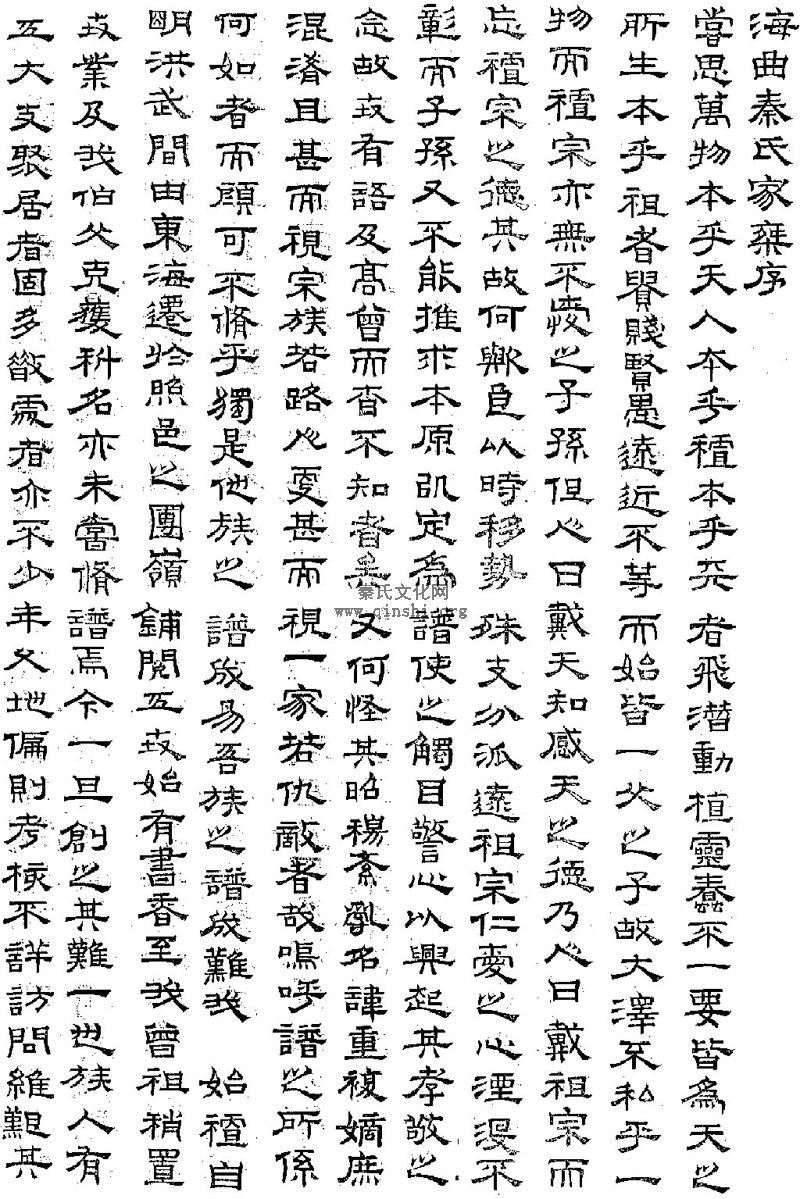 海曲秦氏家乘序
嘗思萬物本乎天人本乎祖本乎天者飛潛動植靈蠢不一要皆為天之
所生本乎祖者貴賤賢愚遠近不等而始皆一父之子故天澤不私乎一
物而祖宗亦無不愛之子孫但人日戴天知感天之德乃人日戴祖宗而
忘祖宗之德其故何歟良以時移勢殊支分派遠祖宗仁愛之心湮沒不
彰而子孫又不能推求本原訂定為譜使之觸目警心以興起其孝敬之
念故世有語及高曾而杳不知者矣又何怪其昭穆紊亂名諱重複嫡庶
混淆且甚而視宗族若路人更甚而視一家若仇敵者哉嗚呼譜之所係
何如者而顧可不脩乎獨是他族之譜成易吾族之譜成難我始祖自
明洪武間由東海遷於照邑之團嶺鋪閱五世始有書香至我曾祖稍置
世業及我伯父克獲科名亦未嘗脩譜焉今一旦創之其難一也族人有
五大支聚居者固多散處者亦不少年久地偏則考核不詳訪問維艱其
秦氏文化网
www.qinshi.org